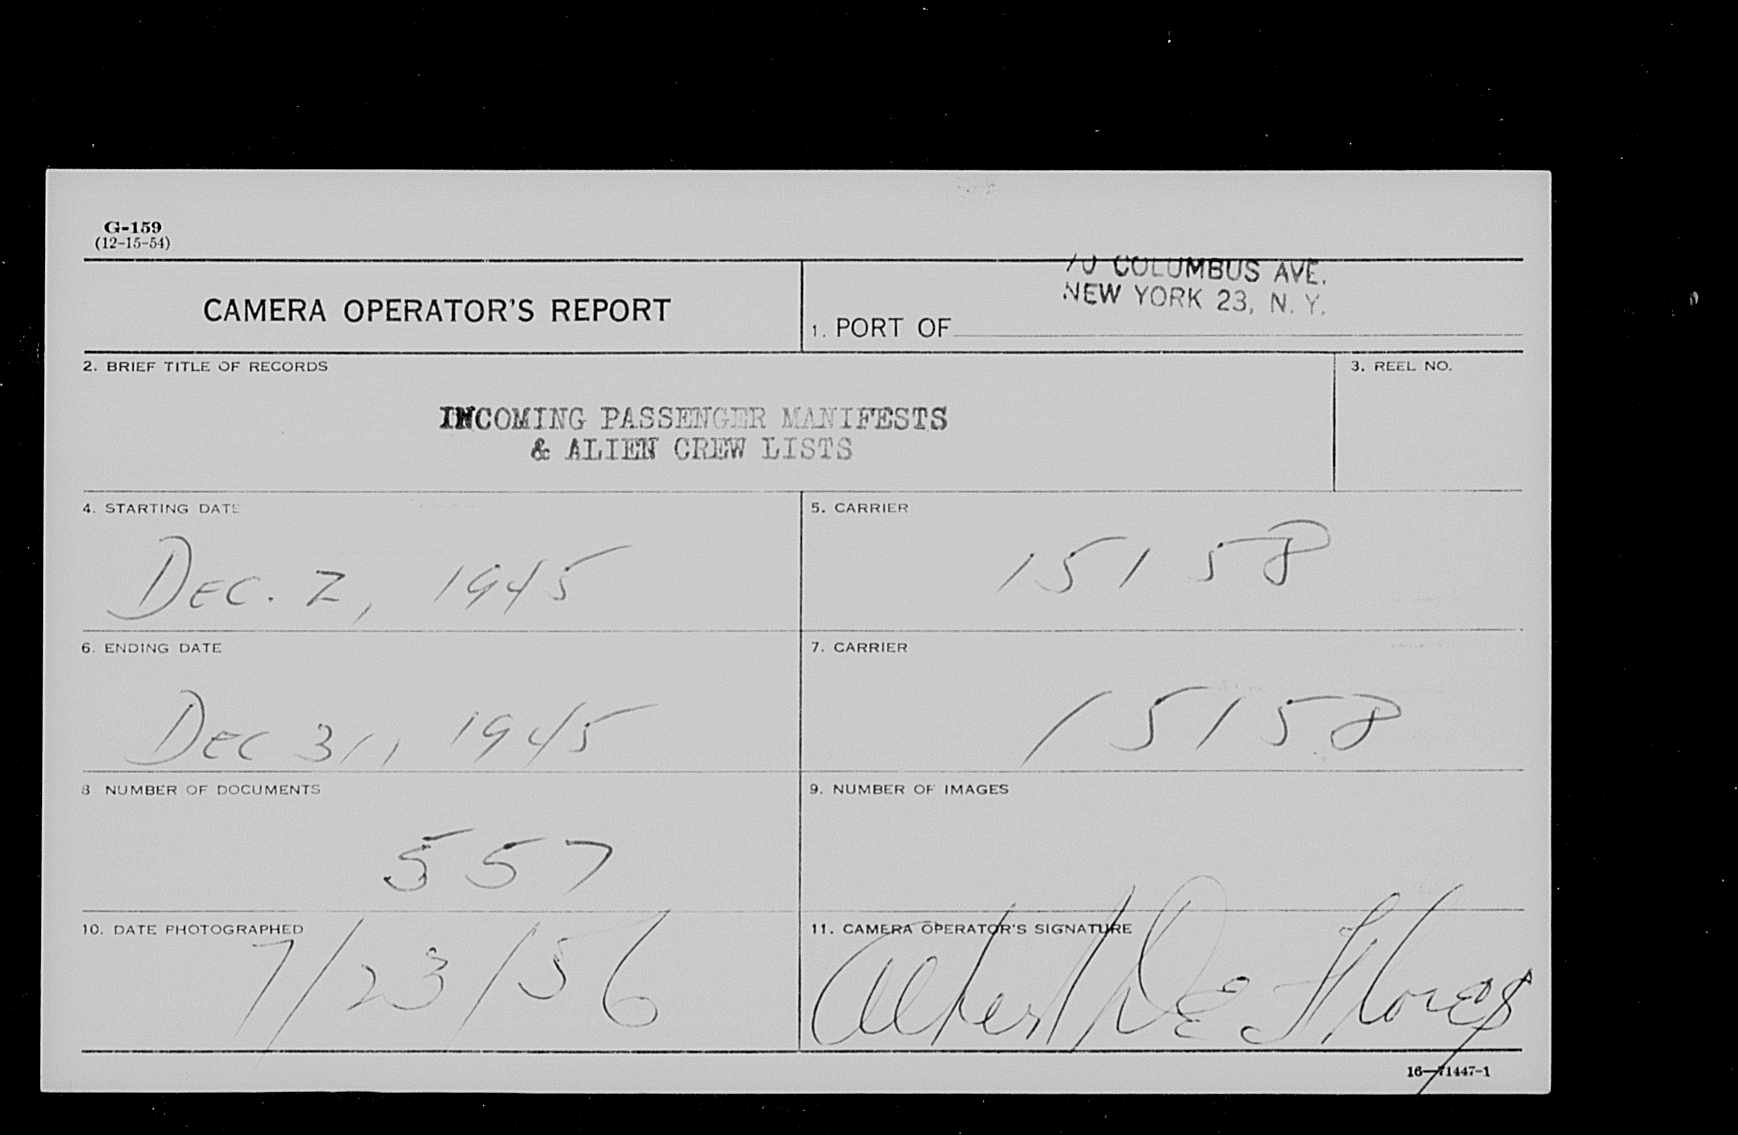 G-159
(12-15-54)
CAMERA OPERATOR'S REPORT
70 COLUMBUS AVE.
NEW YORK 23, N. Y.
1. PORT OF
2. BRIEF TITLE OF RECORDS
3. REEL NO.
INCOMING PASSENGER MANIFESTS
& ALIEN CREW LISTS
4. STARTING DATE
5. CARRIER
DEC. 2, 1945
15158
6. ENDING DATE
7. CARRIER
DEC 31, 1945
15158
8 NUMBER OF DOCUMENTS
9. NUMBER OF IMAGES
557
10. DATE PHOTOGRAPHED
11. CAMERA OPERATOR'S SIGNATURE
7/23/56
Albert De Flores
16—71447-1